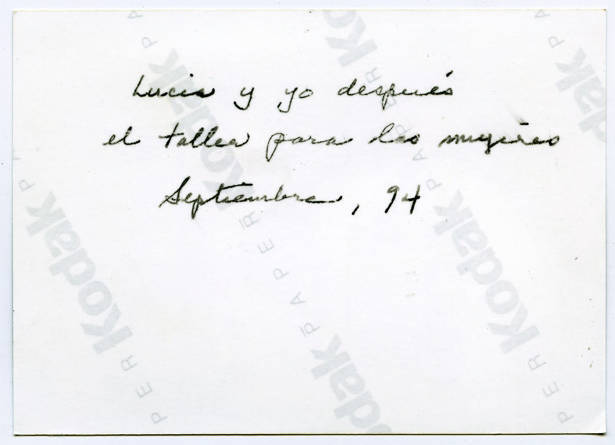 Lucia y yo después
el taller para las mujeres
Septiembre, 94
Kodak PAPER
Kodak PAPER
Kodak PAPER
Kodak PAPER